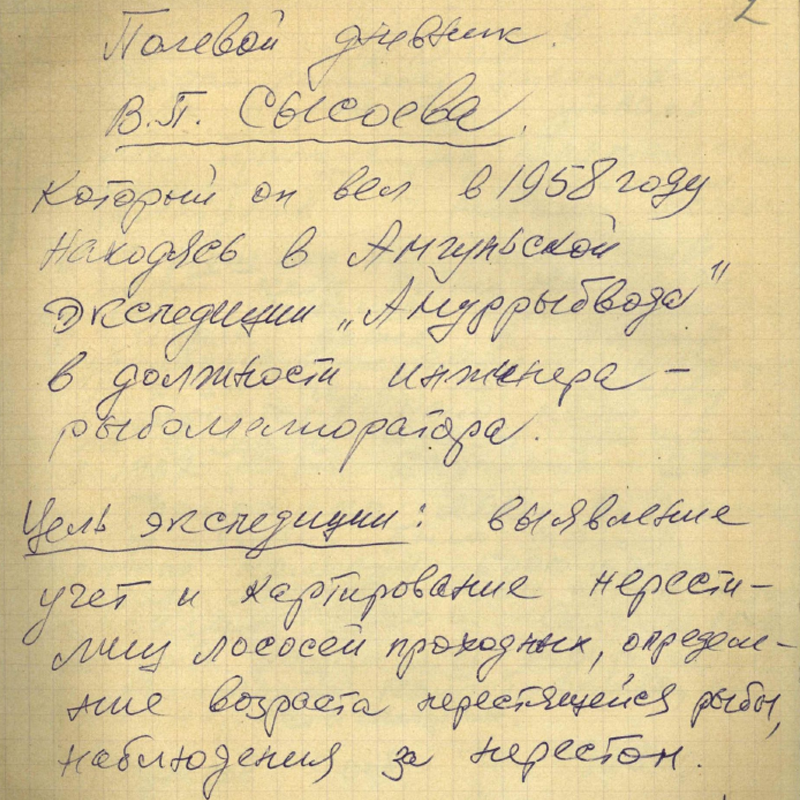 2
Полевой дневник.
В.П. Сысоева.
Который он вел в 1958 году
Находясь в Амгуньской
экспедиции „Амуррыбвода"
в должности инженера-
рыбомелиоратора.
Цель экспедиции: выявление
учет и картирование нерести-
лищ лососей проходных, определе-
ние возраста нерестящейся рыбы,
наблюдения за нерестом.